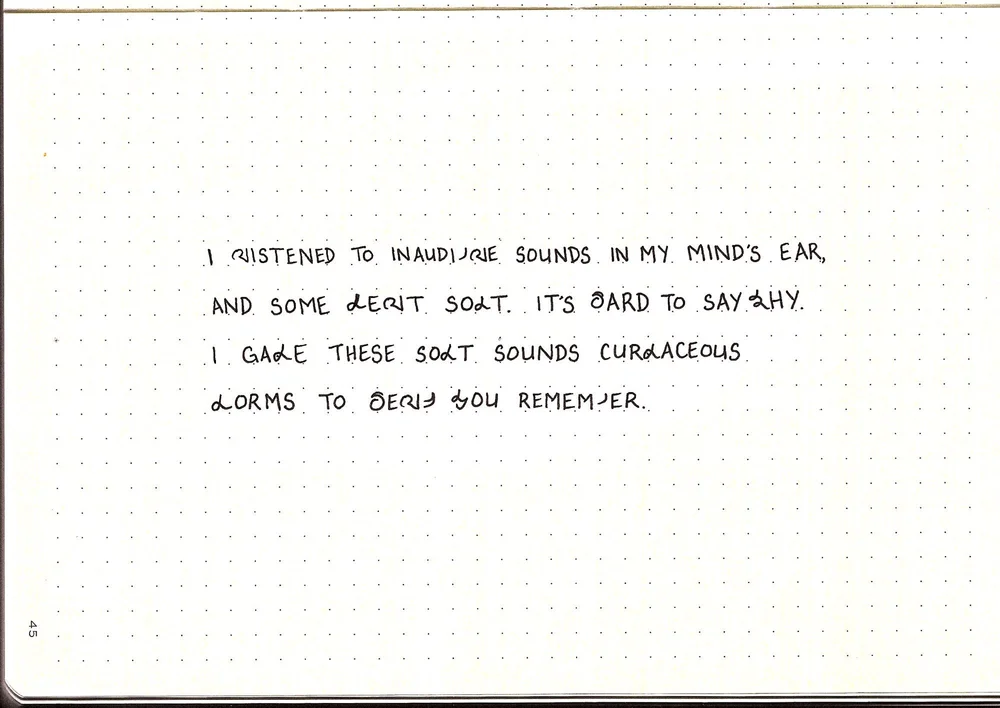 I LISTENED TO INAUDIBLE SOUNDS IN MY MIND'S EAR,
AND SOME FELT SOFT. IT'S HARD TO SAY WHY.
I GAVE THESE SOFT SOUNDS CURVACEOUS
FORMS TO HELP YOU REMEMBER.
45